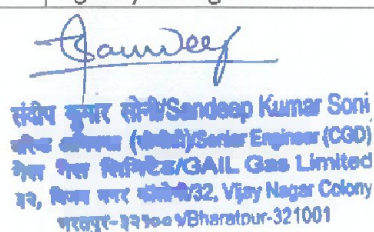 Sandeep
संदीप कुमार सोनी/Sandeep Kumar Soni
वरिष्ठ अभियन्ता (सीजीडी)/Senior Engineer (CGD)
गेल गैस लिमिटेड/GAIL Gas Limited
३२, विजय नगर कॉलोनी/32, Vijay Nagar Colony
भरतपुर-३२१००१/Bharatpur-321001